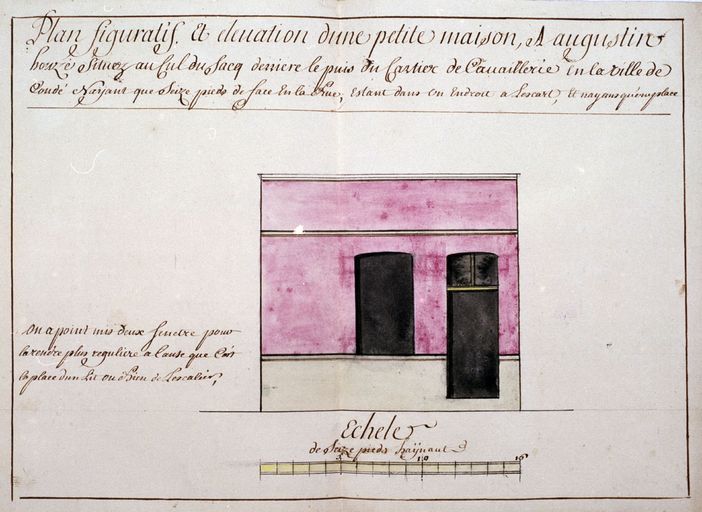 Plan figuratif. Et elevation dune petite maison, A augustin
houzé Situez au Cul du Sacq derriere le puis du Cartier de Cavaillerie En la ville de
Condé N'ayant que Seize pieds de face En la Rue, Estant dans Un Endroit a Lescart, Et nayant qu'une place
On a point mis deux fenetre pour
la rendre plus reguliere a Cause que C'est
la place dun Lit ou d'bien de Lescalier,
Echele
de Seize pieds haÿnaut
5 10 16